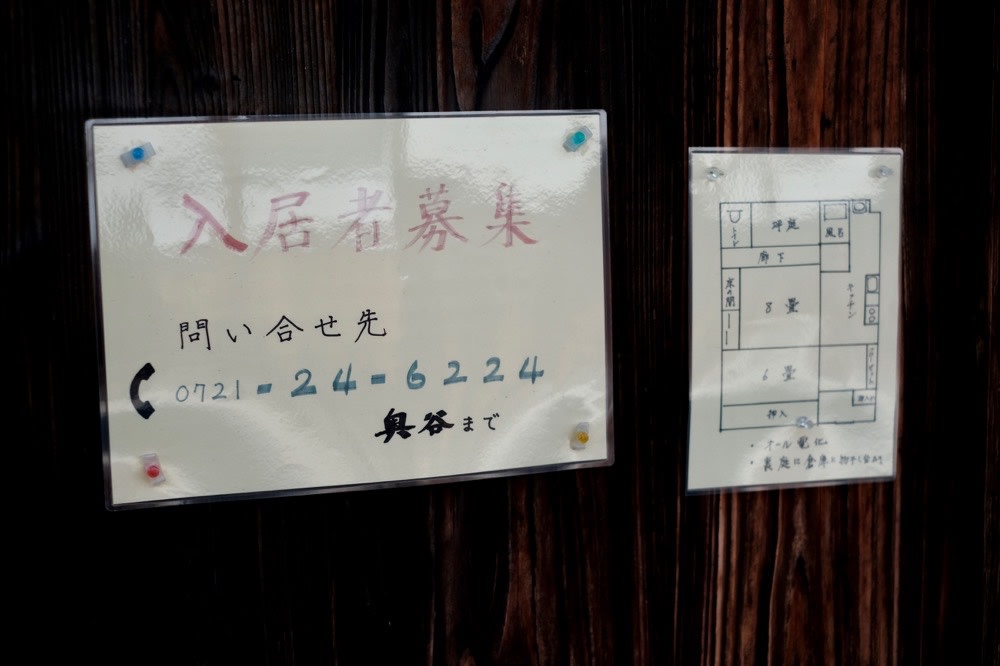 入居者募集
問い合せ先
0721-24-6224
奥谷まで
トイレ
坪庭
風呂
廊下
床の間
8畳
キッチン
6畳
押入
・オール電化